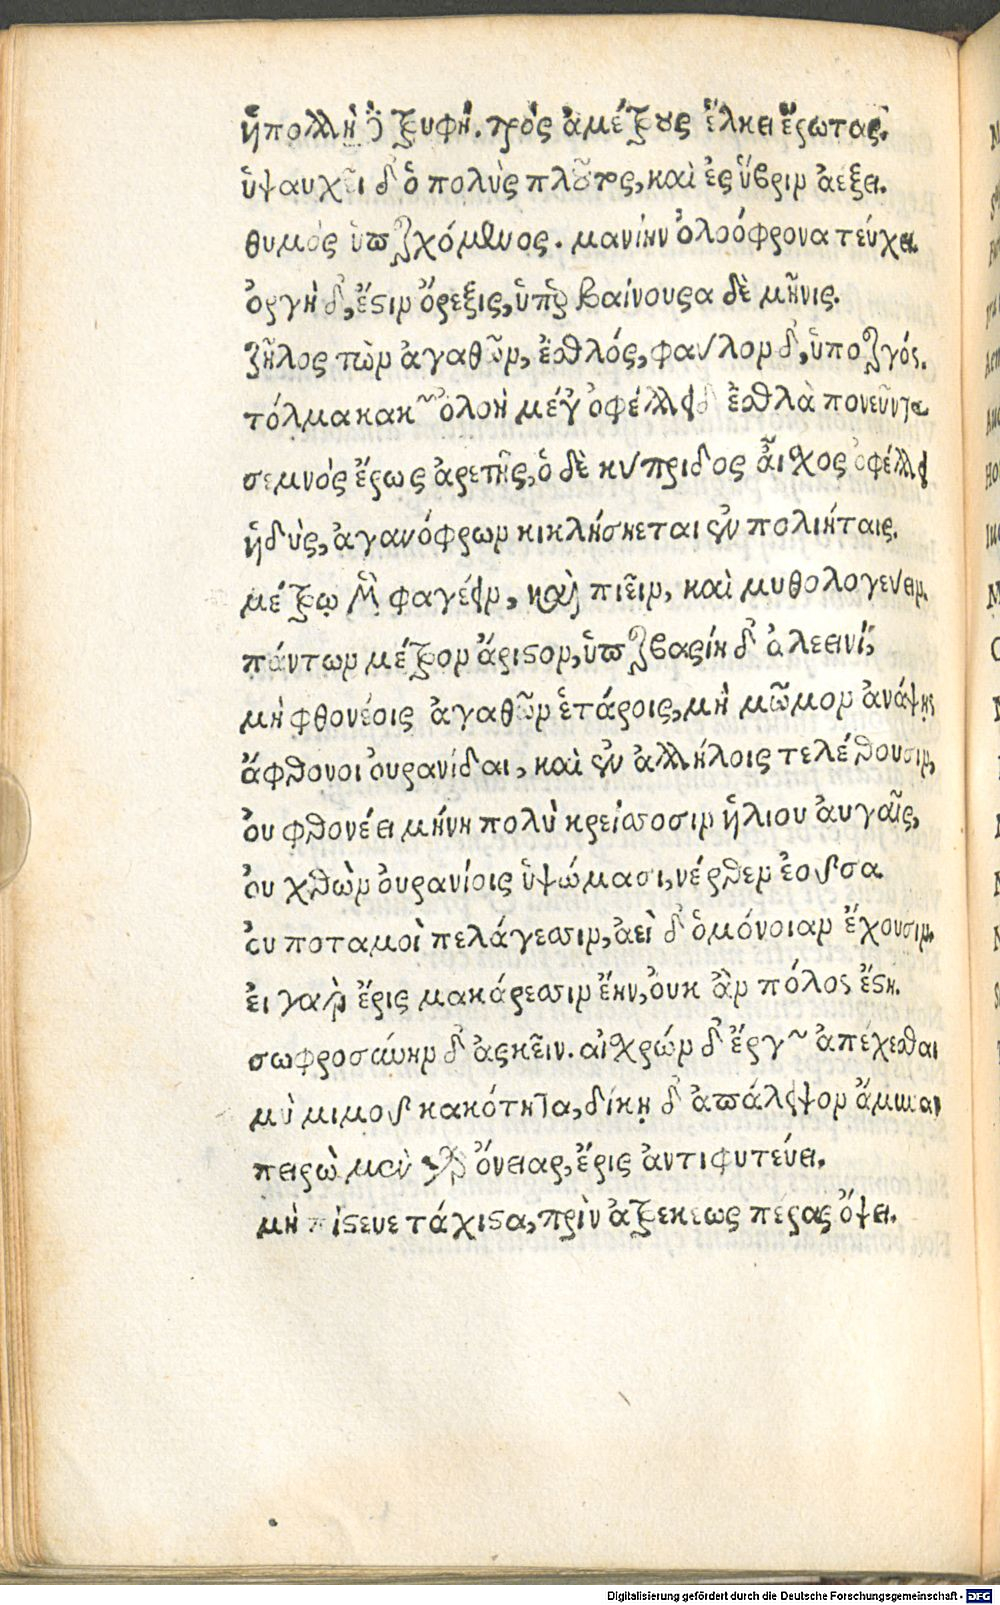 ἡ πολλὴ δὲ τρυφὴ. πρὸς ἀμέτρους ἕλκει ἔρωτας.
ὑψαυχεῖ δ' ὁ πολὺς πλοῦτος, καὶ ἐς ὕβριν ἀέξει.
θυμὸς ὑπερχόμενος. μανίην ὀλοόφρονα τεύχει
ὀργὴ δ', ἔστιν ὄρεξις, ὑπὲρ βαίνουσα δὲ μῆνις.
ζῆλος τῶν ἀγαθῶν, ἐσθλός, φαύλων δ', ὑπέρογκος.
τόλμα κακῶν ὀλοὴ μέγ' ὀφέλλει δ' ἐσθλὰ πονεῦντα
σεμνὸς ἔρως ἀρετῆς, ὁ δὲ κύπριδος αἶσχος ὀφέλλει
ἡδὺς, ἀγανόφρων κικλήσκεται ἐν πολιήταις.
μέτρῳ μὲν φαγέειν, καὶ πιεῖν, καὶ μυθολογεύειν.
πάντων μέτρον ἄριστον, ὑπερβασίη δ' ἀλεεινή,
μὴ φθονέοις ἀγαθῶν ἑτάροις, μὴ μῶμον ἀνάψῃς
ἄφθονοι οὐρανίδαι, καὶ ἐν ἀλλήλοις τελέθουσιν,
ὀυ φθονέει μήνη πολὺ κρείσσοσιν ἡλίου ἀυγαῖς,
ὀυ χθὼν ὀυρανίοις ὑψώμασι, νέρθεν ἐοῦσα
ὀυ ποταμοὶ πελάγεσσιν, ἀεὶ δ' ὁμόνοιαν ἔχουσιν.
ἐι γαρ ἔρις μακάρεσσιν ἔην, ὀυκ ἂν πόλος ἔστη.
σωφροσύνην δ' ἀσκεῖν. αἰσχρῶν δ' ἔργων ἀπέχεσθαι
μὴ μιμοῦ κακότητα, δίκῃ δ' ἀπόλειψον ἄμυναν
πειθὼ μὲν γὰρ ὄνειαρ, ἔρις ἀντιφυτεύει.
μὴ πίστευε τάχιστα, πρὶν ἀτρεκέως πέρας ὄψει.
Digitalisierung gefördert durch die Deutsche Forschungsgemeinschaft - DFG